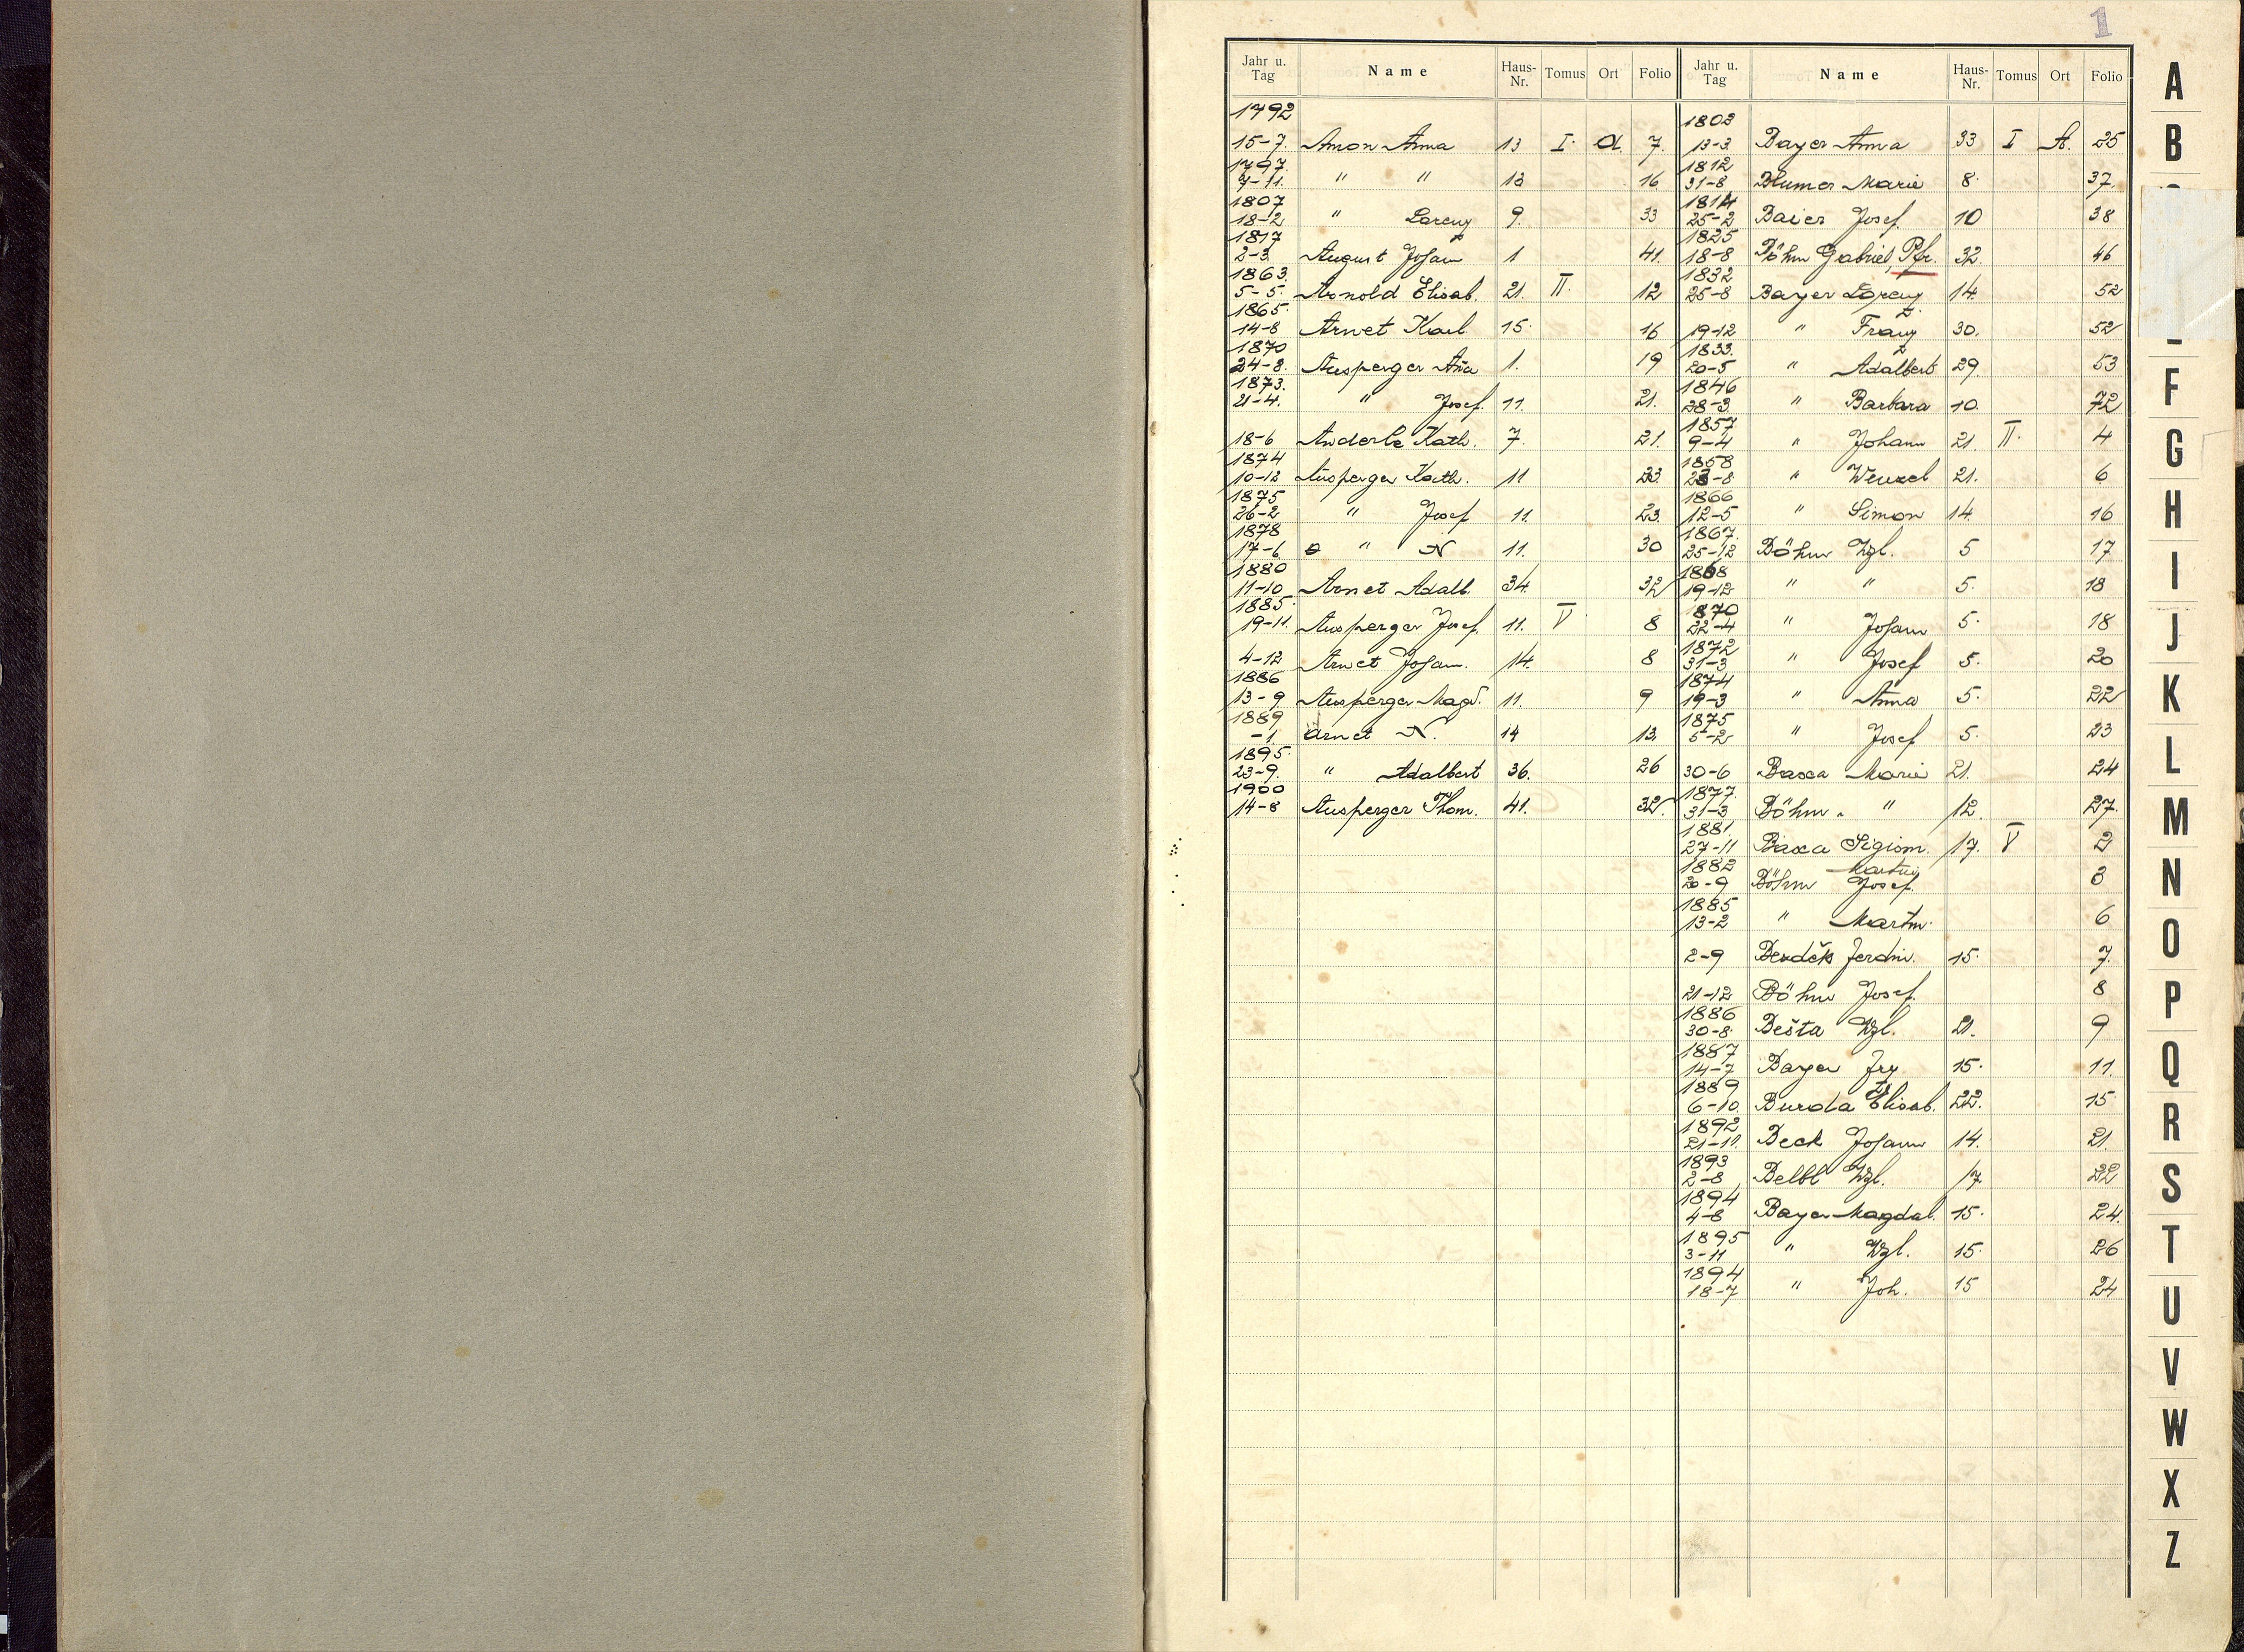 1
Jahr u. Tag Name Haus-Nr. Tomus Ort Folio
1792
15-7. Amon Anna 13 I. A. 7.
1797.
7-11. " " 13 16
1807
18-2 " Lorenz 9. 33
1817
2-3. August Johann 1 41.
1863.
5-5. Arnold Elisab. 21. II. 12
1865.
14-8 Arnet Karl 15. 16
1870
24-8. Ausperger Aña 1. 19
1873.
21-4. " Josef. 11. 21.
18-6 Anderle Kath. 7. 21.
1874
10-12 Ausperger Kath. 11 23.
1875
26-2 " Josef 11. 23.
1878
17-6. " N 11. 30
1880
11-10 Arnet Adalb. 34. 32
1885.
19-11. Ausperger Josef. 11. V 8
4-12 Arnet Johann. 14. 8
1886
13-9. Ausperger Magd. 11. 9
1889
-1. Arnet N. 14 13.
1895.
23-9. " Adalbert 36. 26
1900
14-8 Ausperger Thom. 41. 32.
Jahr u. Tag Name Haus-Nr. Tomus Ort Folio
1803
13-3 Bayer Anna 33 I A. 25
1812
31-8 Blumer Marie 8. 37.
1814
25-2 Baier Josef. 10 38
1825
18-8 Böhm Gabriel, Pfr. 32. 46
1832
25-8 Bayer Lorenz 14. 52
19-12 " Franz 30. 52
1833.
20-5 " Adalbert 29. 53
1846
28-3. " Barbara 10. 72
1857
9-4 " Johann 21. II. 4
1858
23-8 " Wenzel 21. 6
1866
12-5 " Simon 14. 16
1867.
25-12 Böhm Wzl. 5 17
1868
19-12 " " 5. 18
1870
22-4 " Johann 5. 18
1872
31-3 " Josef 5. 20
1874
19-3 " Anna 5. 22
1875
5-2 " Josef 5. 23
30-6 Baxa Marie 21. 24
1877.
31-3 Böhm " 12. 27.
1881.
27-11 Baxa Sigism. 17. V 2
1882 Martin
20-9 Böhm Josef. 3
1885
13-2 " Martin. 6
2-9 Ferdin. 15. 7.
21-12 Böhm Josef. 8
1886
30-8. Bešta Wzl. 21. 9
1887
14-7 Bayer Frz 15. 11.
1889
6-10. Burda Elisab. 22. 15.
1892
21-11. Beck Johann 14. 21.
1893
2-8 Belbl Wzl. 17. 22
1894
4-8 Bayer Magdal. 15. 24.
1895
3-11 " Wzl. 15. 26
1894
18-7 " Joh. 15 24
A
B
F
G
H
I
J
K
L
M
N
O
P
Q
R
S
T
U
V
W
X
Z